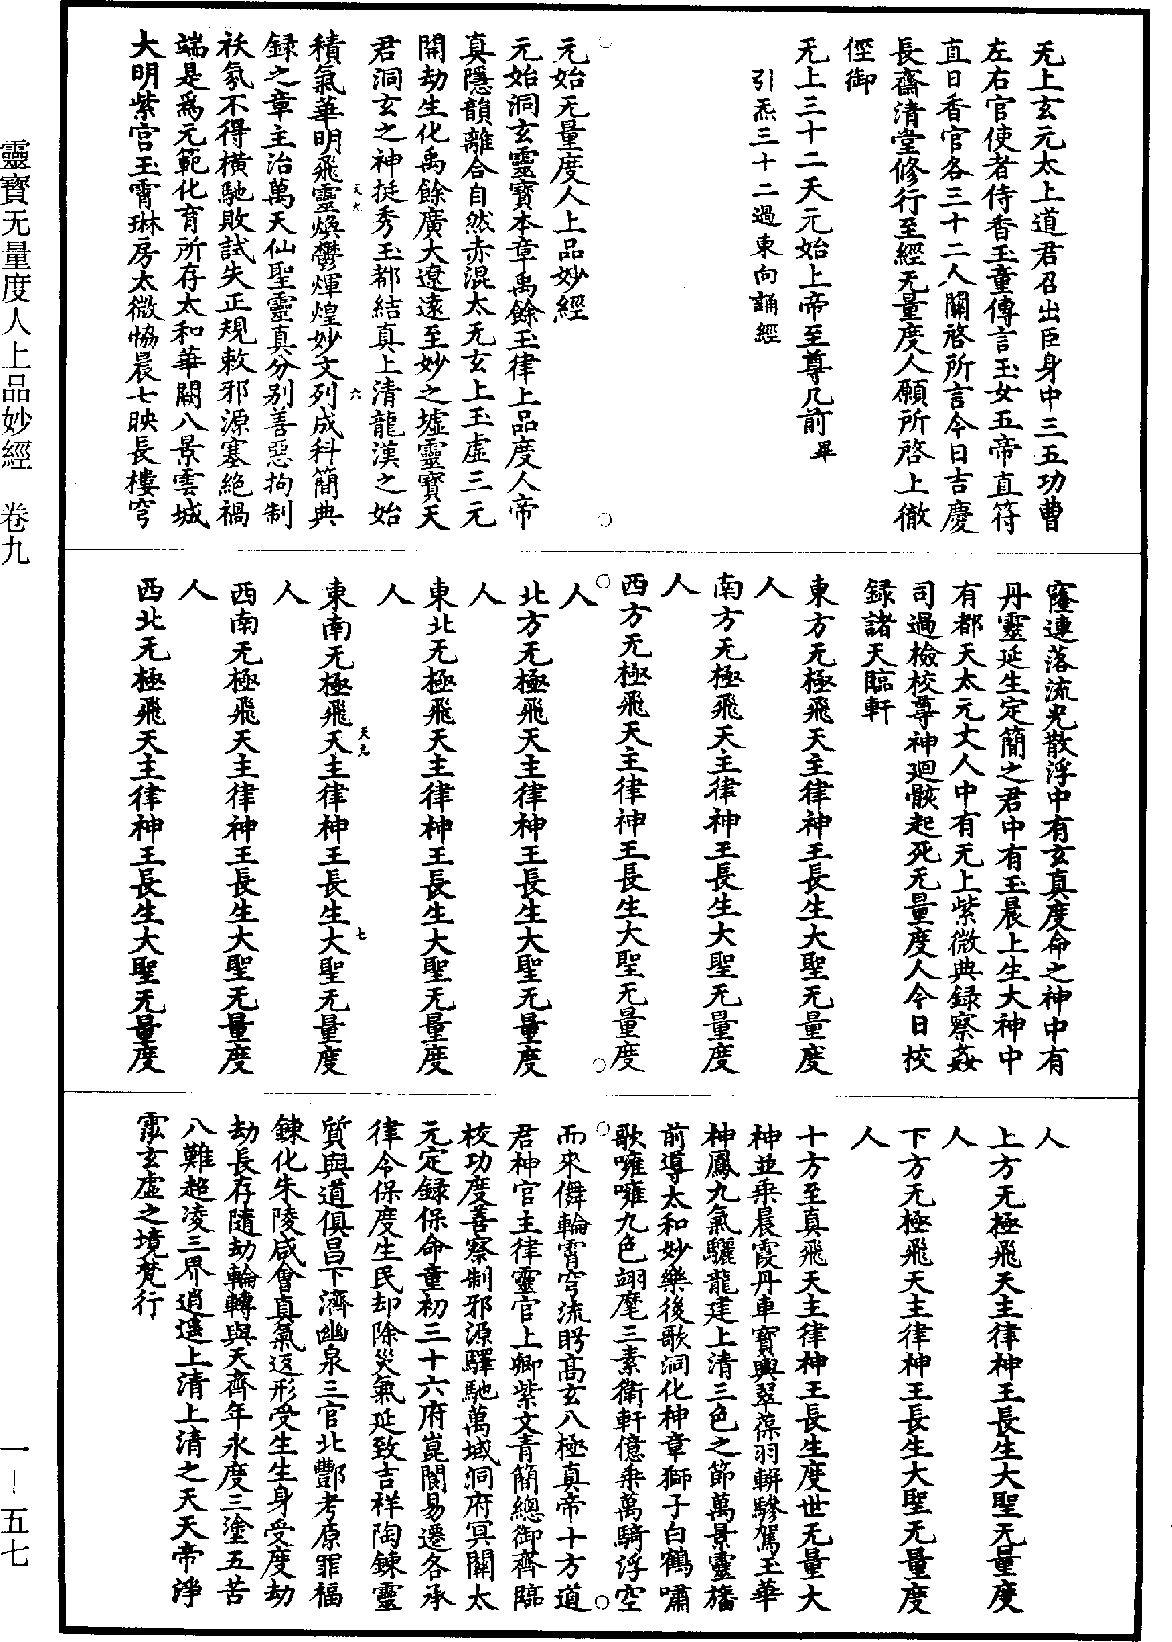 无上玄元太上道君召出臣身中三五功曹
左右官使者侍香玉童傳言玉女五帝直符
直日香官各三十二人關啓所言今日吉慶
長齋清堂修行至經无量度人願所啓上徹
徑御
无上三十二天元始上帝至尊几前畢
引炁三十二過東向誦經
元始无量度人上品妙經
元始洞玄靈寶本章禹餘玉律上品度人帝
真隱韻離合自然赤混太无玄上玉虛三元
開劫生化禹餘廣大遼遠至妙之墟靈寶天
君洞玄之神挺秀玉都結真上清龍漢之始
積氣華明飛靈煥鬱煇煌妙文列成科簡典
天九
六
録之章主治萬天仙聖靈真分别善惡拘制
祅氛不得橫馳敗試失正規敕邪源塞絶禍
端是爲元範化育所存太和華闕八景雲城
大明紫宫玉霄琳房太微恊晨七映長樓穹
窿連落流光散浮中有玄真度命之神中有
丹靈延生定簡之君中有玉晨上生大神中
有都天太元丈人中有无上紫微典録察姦
司過檢校尊神廻骸起死无量度人今日校
録諸天臨軒
東方无極飛天主律神王長生大聖无量度
人
南方无極飛天主律神王長生大聖无量度
人
西方无極飛天主律神王長生大聖无量度
人
北方无極飛天主律神王長生大聖无量度
人
東北无極飛天主律神王長生大聖无量度
人
東南无極飛天主律神王長生大聖无量度
天九
七
人
西南无極飛天主律神王長生大聖无量度
人
西北无極飛天主律神王長生大聖无量度
人
上方无極飛天主律神王長生大聖无量度
人
下方无極飛天主律神王長生大聖无量度
人
十方至真飛天主律神王長生度世无量大
神並乘晨霞丹車寶輿翠葆羽軿驂駕玉華
神鳳九氣驪龍建上清三色之節萬景靈旛
前導太和妙樂後歌洞化神章獅子白鶴嘯
歌嗈嗈九色翊麾三素衛軒億乘萬騎浮空
而來儛輪霄穹流眄高玄八極真帝十方道
君神官主律靈官上卿紫文青簡總御齊臨
校功度善察制邪源驛馳萬域洞府冥關太
元定録保命童初三十六府崑閬易遷各承
律令保度生民却除災氣延致吉祥陶鍊靈
質與道俱昌下濟幽泉三官北酆考原罪福
鍊化朱陵咸會真氣返形受生生身受度劫
劫長存隨劫輪轉與天齊年永度三塗五苦
八難超凌三界逍遥上清上清之天天帝淨
霐玄虛之境梵行
靈寶无量度人上品妙經 卷九
一—五七